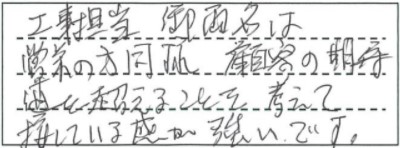 工事担当 御両名は
営業の方同様 顧客の期待
を超えることを考えて
接している感が強いです。